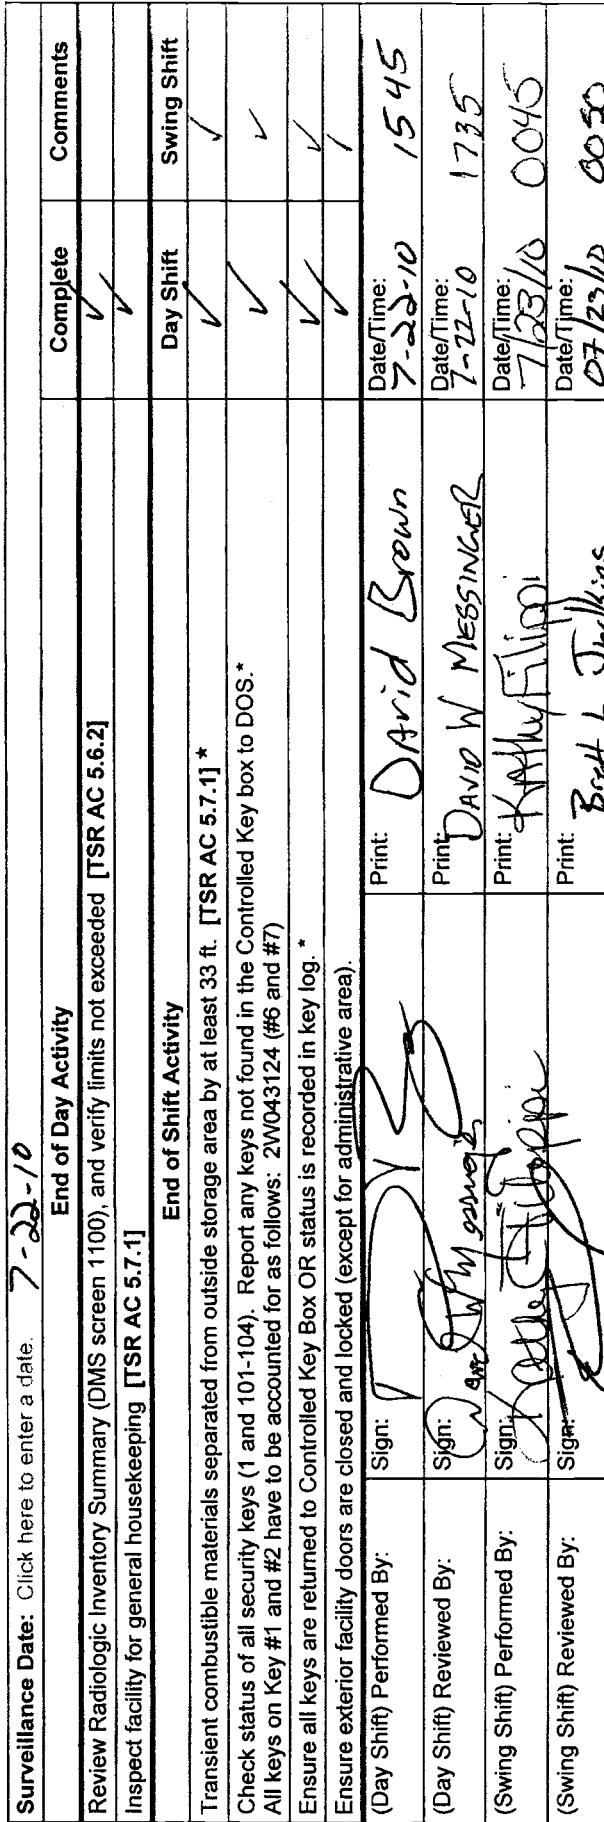 Surveillance Date: Click here to enter a date. 7-22-10
End of Day Activity Complete Comments
Review Radiologic Inventory Summary (DMS screen 1100), and verify limits not exceeded [TSR AC 5.6.2] ✓
Inspect facility for general housekeeping [TSR AC 5.7.1] ✓
End of Shift Activity Day Shift Swing Shift
Transient combustible materials separated from outside storage area by at least 33 ft. [TSR AC 5.7.1] * ✓ ✓
Check status of all security keys (1 and 101-104). Report any keys not found in the Controlled Key box to DOS.* ✓ ✓
All keys on Key #1 and #2 have to be accounted for as follows: 2W043124 (#6 and #7)
Ensure all keys are returned to Controlled Key Box OR status is recorded in key log. * ✓ ✓
Ensure exterior facility doors are closed and locked (except for administrative area). ✓ ✓
(Day Shift) Performed By: Sign: Print: David Brown Date/Time: 7-22-10 1545
(Day Shift) Reviewed By: Sign: Print: DAVID W MESSINGER Date/Time: 7-22-10 1735
(Swing Shift) Performed By: Sign: Kathy Filippi Print: Kathy Filippi Date/Time: 7/23/10 0045
(Swing Shift) Reviewed By: Sign: Print: Brett L Date/Time: 07/23/10